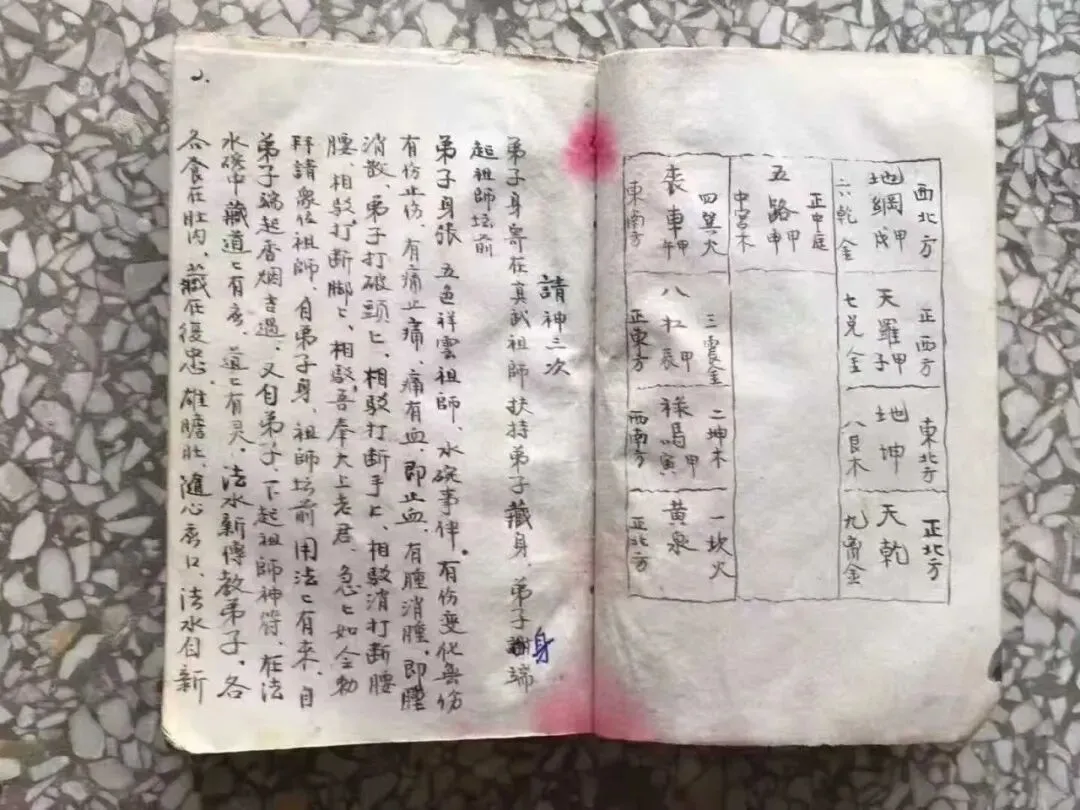 西北方
地網甲戌
六乾金
正西方
天羅甲子
七兑金
東北方
地坤
八艮木
正北方
天乾
九离金
正中庭
五路甲申
中宮木
四巽火
丧車甲午
東南方
三震金
八扛甲辰
正東方
二坤木
禄馬甲寅
西南方
一坎火
黄泉
正北方
請神三次
弟子身寄在真武祖師扶持弟子藏身、弟子身端
起祖師坛前
弟子身張、五色祥雲祖師、水碗事伴、有伤变化無伤
有伤止伤、有痛止痛、痛有血、即止血、有腫消腫、即腫
消散、弟子打破頭匕、相駁打断手匕、相駁消打断腰
腰、相駁打断脚匕、相駁、吾奉大上老君、急匕如令勅
拜請衆位祖師、自弟子身、祖師坛前用法匕有来、自
弟子端起香烟吉遇、又自弟子、下起祖師神符、在法
水碗中藏道匕有 道匕有灵、法水新傳教弟子、各
各食在肚内、藏在後忠、雄膽肚、隨心 口、法水自新
2.